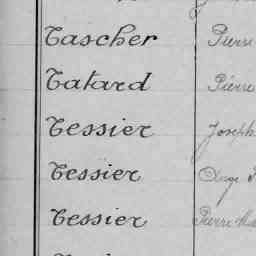 Tascher Pierre
Tatard Pierre
Tessier Joseph
Tessier Ange
Tessier Pierre